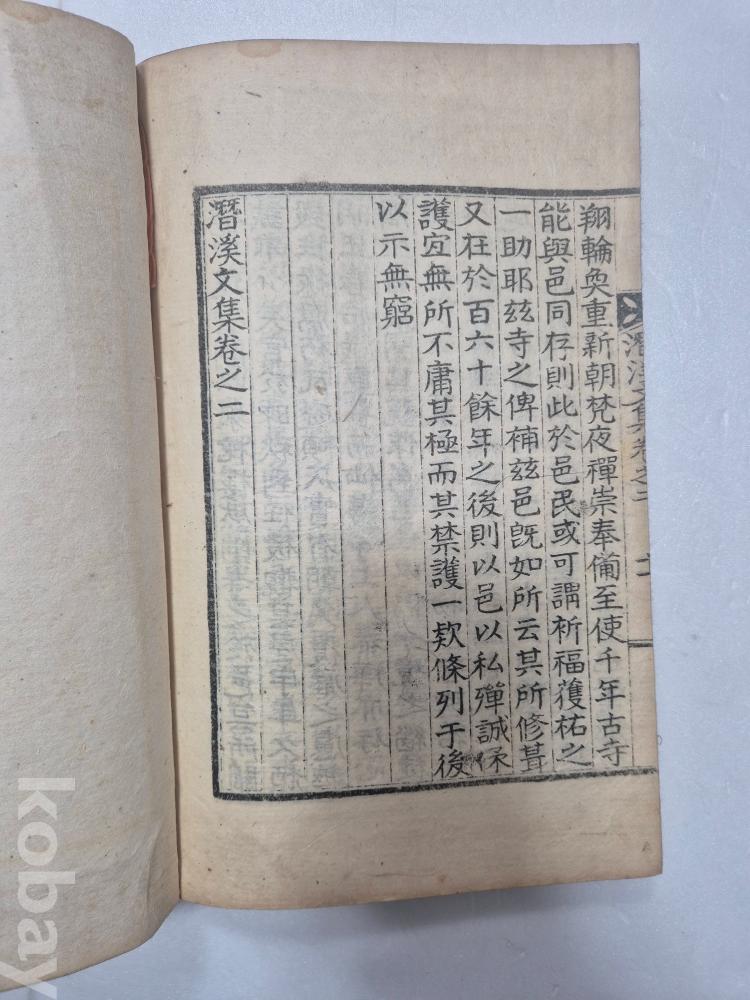 翔輪奐重新朝梵夜禪崇奉備至使千年古寺
能與邑同存則此於邑民或可謂祈福獲祐之
一助耶玆寺之俾補玆邑旣如所云其所修葺
又在於百六十餘年之後則以邑以私殫誠保
護宜無所不庸其極而其禁護一欵條列于後
以示無窮
潛溪文集卷之二
潛溪文集卷之二
kobay